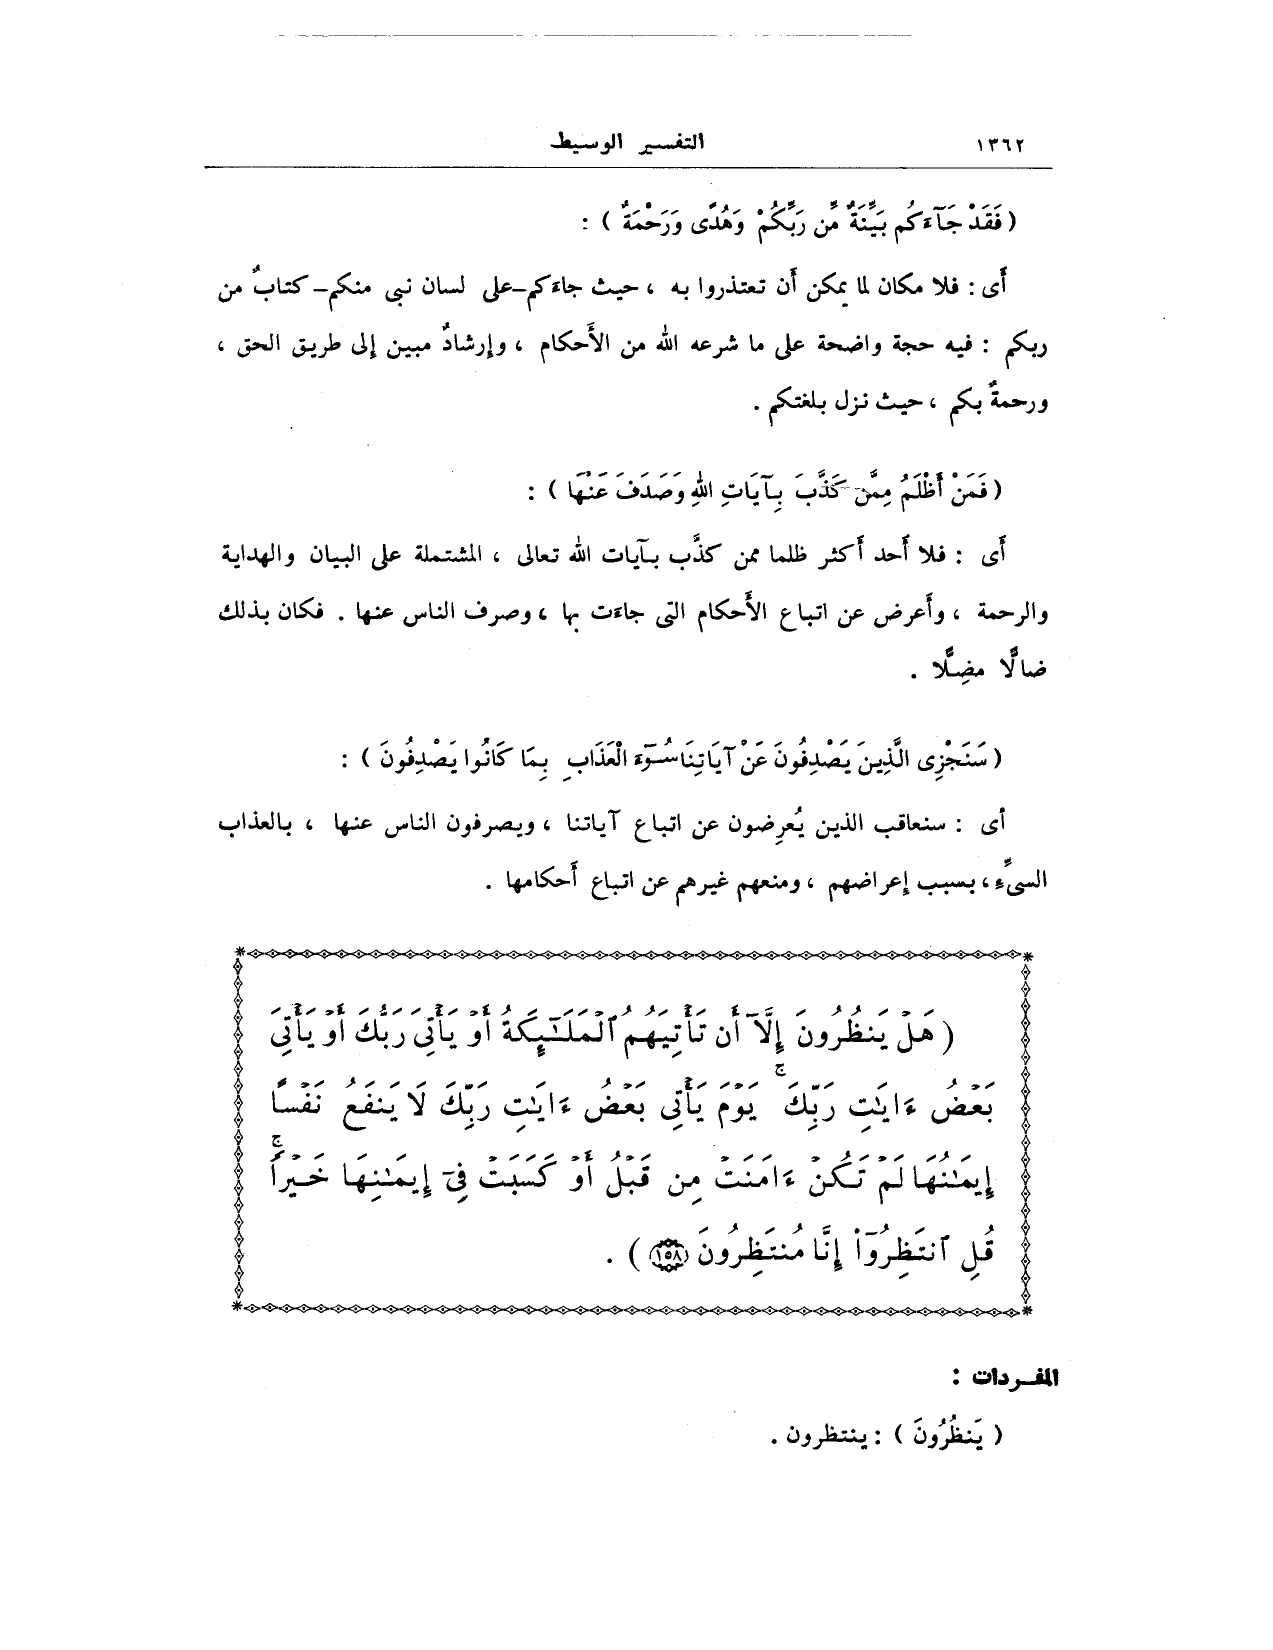 ١٣٦٢
التفسير الوسيط
( فَقَدْ جَآءَكُم بَيِّنَةٌ مِّن رَبِّكُمْ وَهُدًى وَرَحْمَةٌ ) :
أَى : فلا مكان لما يمكن أَن تعتذروا به ، حيث جاءكم–على لسان نبى منكم– كتابٌ من
ربكم : فيه حجة واضحة على ما شرعه الله من الأَحكام ، وإرشادٌ مبين إلى طريق الحق ،
ورحمةٌ بكم ، حيث نزل بلغتكم .
( فَمَنْ أَظْلَمُ مِمَّن كَذَّبَ بِآيَاتِ اللهِ وَصَدَفَ عَنْهَا ) :
أَى : فلا أَحد أَكثر ظلما ممن كذَّب بآيات الله تعالى ، المشتملة على البيان والهداية
والرحمة ، وأَعرض عن اتباع الأَحكام التى جاءَت بها ، وصرف الناس عنها . فكان بذلك
ضالًّا مضِلًّا .
( سَنَجْزِى الَّذِينَ يَصْدِفُونَ عَنْ آيَاتِنَا سُوٓءَ الْعَذَابِ بِمَا كَانُوا يَصْدِفُونَ ) :
أى : سنعاقب الذين يُعرِضون عن اتباع آياتنا ، ويصرفون الناس عنها ، بالعذاب
السىِّء ، بسبب إعراضهم ، ومنعهم غيرهم عن اتباع أَحكامها .
( هَلْ يَنظُرُونَ إِلَّآ أَن تَأْتِيَهُمُ ٱلْمَلَـٰٓئِكَةُ أَوْ يَأْتِىَ رَبُّكَ أَوْ يَأْتِىَ
بَعْضُ ءَايَـٰتِ رَبِّكَ ۚ يَوْمَ يَأْتِى بَعْضُ ءَايَـٰتِ رَبِّكَ لَا يَنفَعُ نَفْسًا
إِيمَـٰنُهَا لَمْ تَكُنْ ءَامَنَتْ مِن قَبْلُ أَوْ كَسَبَتْ فِىٓ إِيمَـٰنِهَا خَيْرًا ۗ
قُلِ ٱنتَظِرُوٓا۟ إِنَّا مُنتَظِرُونَ ١٥٨ ) .
المفـردات :
( يَنظُرُونَ ) : ينتظرون .